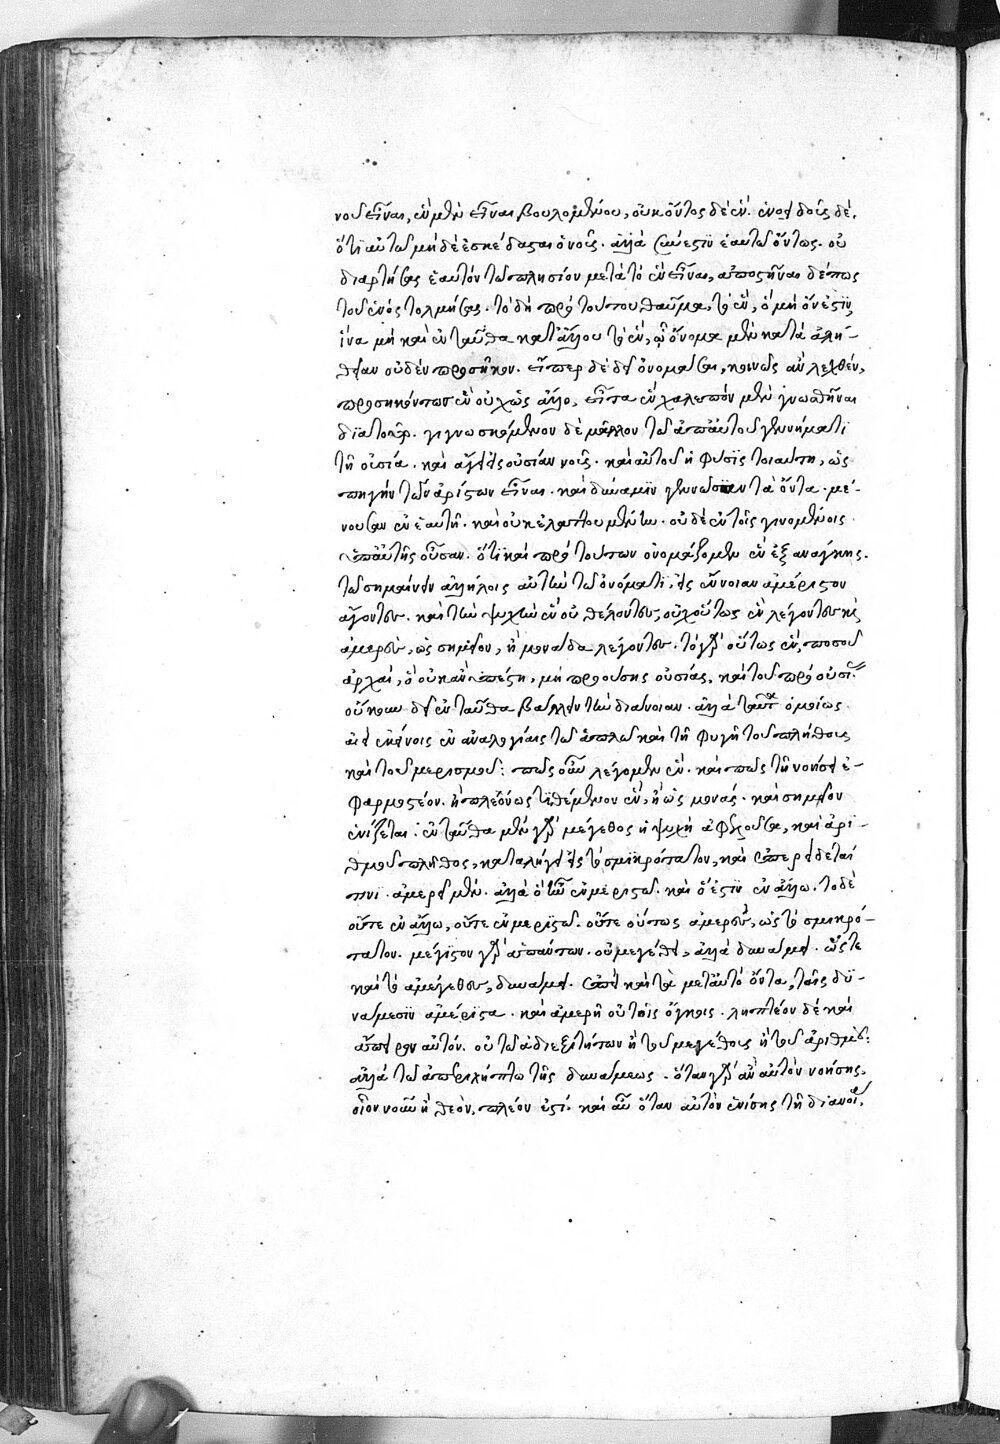 νοῦ εἶναι, ἓν μὲν εἶναι βουλομένου, οὐκ ὄντος δὲ ἕν. ἑνοειδοῦς δέ.
ὅτι αὐτῷ μηδὲ ἐσκέδασται ὁ νοῦς. ἀλλὰ σύνεστιν ἑαυτῷ ὄντως. οὐ
διαρτήσας ἑαυτὸν τῷ πλησίον μετὰ τὸ ἓν εἶναι, ἀποστῆναι δέ πως
τοῦ ἑνὸς τολμήσας. τὸ δὴ πρὸ τούτου θαῦμα, τὸ ἓν, ὃ μὴ ὄν ἐστιν
ἵνα μὴ καὶ ἐνταῦθα κατ' ἄλλου τὸ ἓν, ᾧ ὄνομα μὲν κατὰ ἀλή-
θειαν οὐδὲν προσῆκον. εἴπερ δὲ δεῖ ὀνομάσαι, κοινῶς ἂν λεχθὲν,
προσηκόντως ἓν οὐχ ὡς ἄλλο, εἶτα ἓν χαλεπὸν μὲν γνωσθῆναι
διὰ τοῦτο. γιγνωσκόμενον δὲ μᾶλλον τῷ ἀπ' αὐτοῦ γεννήματι
τῇ οὐσίᾳ. καὶ ἄγει εἰς οὐσίαν νοῦς. καὶ αὐτοῦ ἡ φύσις τοιαύτη, ὡς
πηγὴν τῶν ἀρίστων εἶναι. καὶ δύναμιν γεννῶσαν τὰ ὄντα. μέ-
νουσαν ἐν ἑαυτῇ. καὶ οὐκ ἐλαττουμένην. οὐδὲ ἐν τοῖς γινομένοις
ὑπ' αὐτῆς οὖσαν. ὅτι καὶ πρὸ τούτων ὀνομάζομεν ἓν ἐξ ἀνάγκης.
τῷ σημαίνειν ἀλλήλοις αὐτὴν τῷ ὀνόματι, εἰς ἔννοιαν ἀμέριστον
ἄγοντες. καὶ τὴν ψυχὴν ἓν οὐ θέλοντες, οὐχ οὕτως ἓν λέγοντες καὶ
ἀμερὲς, ὡς σημεῖον, ἢ μονάδα λέγοντες. τὸ γὰρ οὕτως ἓν, ποσοῦ
ἀρχαὶ, ὃ οὐκ ἂν ὑπέστη, μὴ προούσης οὐσίας, καὶ τοῦ πρὸ οὐσίας
οὔκουν δεῖ ἐνταῦθα βάλλειν τὴν διάνοιαν. ἀλλὰ ταῦτα ὁμοίως
αἰεὶ ἐκείνοις ἐν ἀναλογίαις τῷ ἁπλῷ καὶ τῇ φυγῇ τοῦ πλήθους
καὶ τοῦ μερισμοῦ: πῶς οὖν λέγομεν ἕν. καὶ πῶς τῇ νοήσει ἐ-
φαρμοστέον. ἢ πλεόνως τιθέμενον ἓν, ἢ ὡς μονάς. καὶ σημεῖον
ἑνίζεται. ἐνταῦθα μὲν γὰρ μέγεθος ἡ ψυχὴ ἀφελοῦσα, καὶ ἀρι-
θμοῦ πλῆθος, καταλήγει εἰς τὸ σμικρότατον, καὶ ἐπερείδεταί
τινι. ἀμερεῖ μὲν. ἀλλὰ ὃ ἦν ἐν μεριστῷ. καὶ ὅ ἐστιν ἐν ἄλλῳ. τὸ δὲ
οὔτε ἐν ἄλλῳ, οὔτε ἐν μεριστῷ. οὔτε οὕτως ἀμερὲς, ὡς τὸ σμικρό-
τατον. μέγιστον γὰρ ἁπάντων. οὐ μεγέθει, ἀλλὰ δυνάμει. ὥστε
καὶ τὸ ἀμέγεθες, δυνάμει. ἐπεὶ καὶ τὰ μετ' αὐτὸ ὄντα, ταῖς δυ-
νάμεσιν ἀμέριστα. καὶ ἀμερῆ οὐ τοῖς ὄγκοις. ληπτέον δὲ καὶ
ἄπειρον αὐτὸν. οὐ τῷ ἀδιεξιτήτῳ ἢ τοῦ μεγέθους ἢ τοῦ ἀριθμοῦ:
ἀλλὰ τῷ ἀπεριλήπτῳ τῆς δυνάμεως. ὅταν γὰρ ἂν αὐτὸν νοήσῃς,
οἷον νοῦν ἢ θεόν, πλέον ἐστί. καὶ αὖ ὅταν αὐτὸν ἑνίσῃς τῇ διανοίᾳ,